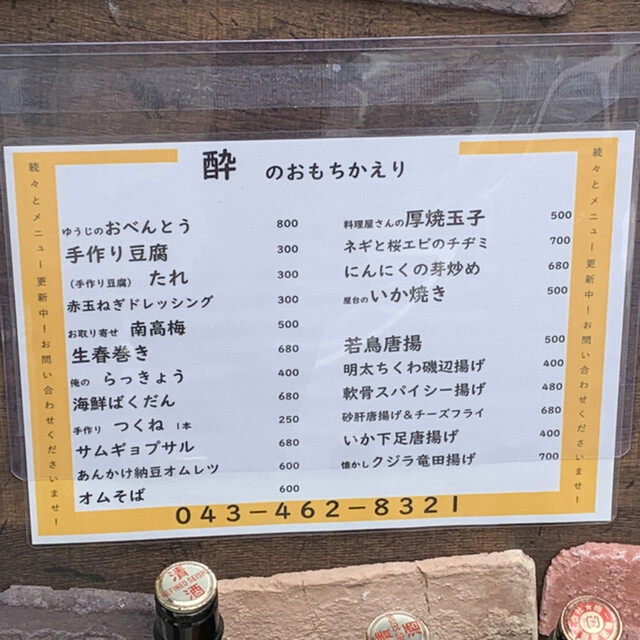 酔 のおもちかえり
ゆうじのおべんとう 800
手作り豆腐 300
(手作り豆腐) たれ 300
赤玉ねぎドレッシング 300
お取り寄せ 南高梅 500
生春巻き 680
俺の らっきょう 400
海鮮ばくだん 680
手作り つくね 1本 250
サムギョプサル 680
あんかけ納豆オムレツ 600
オムそば 600
料理屋さんの厚焼玉子 500
ネギと桜エビのチヂミ 700
にんにくの芽炒め 680
屋台のいか焼き 500
若鳥唐揚 500
明太ちくわ磯辺揚げ 400
軟骨スパイシー揚げ 480
砂肝唐揚げ&チーズフライ 680
いか下足唐揚げ 400
懐かしクジラ竜田揚げ 700
043-462-8321
続々とメニュー更新中!お問い合わせくださいませ!
続々とメニュー更新中!お問い合わせくださいませ!
清酒